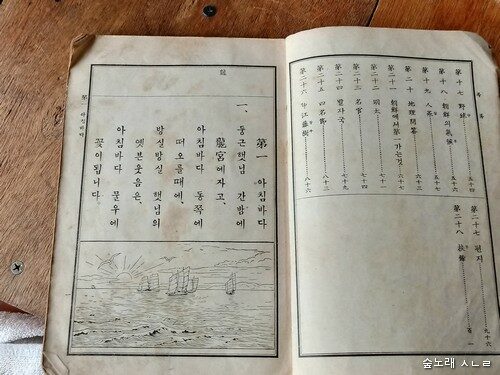 第十七 野球 五十四
第十八 朝鮮의氣候
第十九 人蔘
第二十 地理問答
第二十一 朝鮮에서第一가는것 六十七
第二十二 明太 七十一
第二十三 名官 七十四
第二十四 七十九
第二十五 四名節 八十三
第二十六 八十六
第二十七 편지 九十六
第二十八 扶餘 百一
第一 아침바다
一、
둥근햇님 간밤에
龍宮에자고、
아침바다 동쪽에
떠오를때에、
방실방실 햇님의
옛븐웃음은、
아침바다 물우에
꽃이됩니다。
第一 아침바다
숲노래 ㅅㄴㄹ